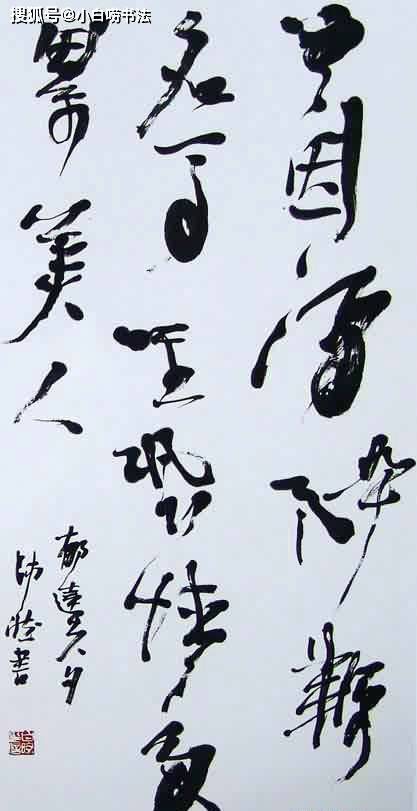 搜狐号@小白唠书法
曾因酒醉鞭
名马生恐情多
累美人
郁達夫句
書